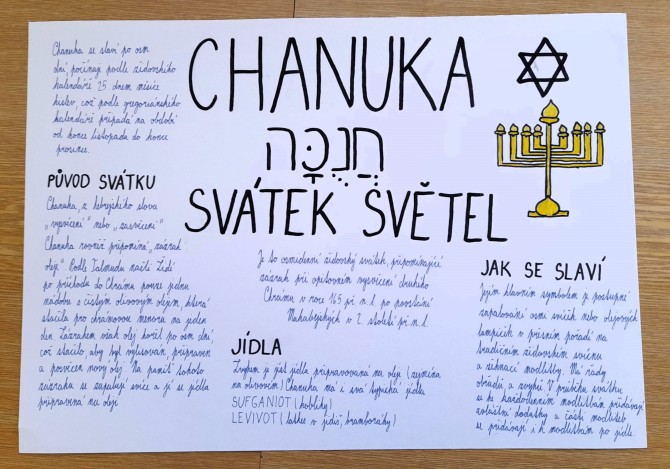 CHANUKA
חֲנֻכָּה
SVÁTEK SVĚTEL
Chanuka se slaví po osm
dní, počínaje podle židovského
kalendáře 25. dnem měsíce
kislev, což podle gregoriánského
kalendáře připadá na období
od konce listopadu do konce
prosince.
PŮVOD SVÁTKU
Chanuka, z hebrejského slova
„vysvěcení" nebo „zasvěcení"
Chanuka rovněž připomíná „zázrak
oleje". Podle Talmudu našli Židé
po příchodu do Chrámu pouze jednu
nádobu s čistým olivovým olejem, která
stačila pro chrámovou menoru na jeden
den. Zázrakem však olej hořel po osm dní,
což stačilo, aby byl vylisován, připraven
a posvěcen nový olej. Na paměť tohoto
zázraku se zapalují svíce a jí se jídla
připravená na oleji
Je to osmidenní židovský svátek, připomínající
zázrak při opětovném vysvěcení druhého
Chrámu v roce 165 př. n. l. po povstání
Makabejských v 2. století př. n. l.
JÍDLA
Zvykem je jíst jídla připravovaná na oleji (zejména
na olivovém) Chanuka má i svá typická jídla
SUFGANIOT (koblihy)
LEVIVOT (latkes v jidiš, bramboráky)
JAK SE SLAVÍ
Jejím hlavním symbolem je postupné
zapalování osmi svíček nebo olejových
lampiček v přesném pořadí na
tradičním židovském svícnu
a žehnací modlitby. Má řády
obřadů, a zvyků. V průběhu svátku
se ke každodenním modlitbám přidávají
zvláštní dodatky a části modliteb
se přidávají i k modlitbám po jídle.